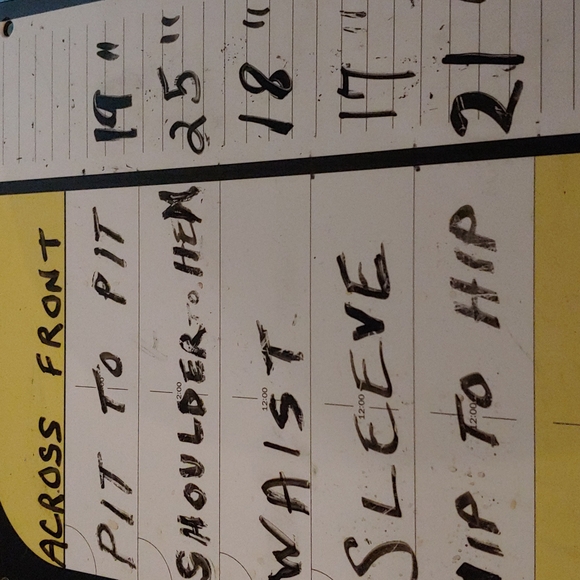 ACROSS FRONT
PIT TO PIT 19"
SHOULDER TO HEM 25"
12:00
WAIST 18"
12:00
SLEEVE 17"
12:00
HIP TO HIP 21"
12:00